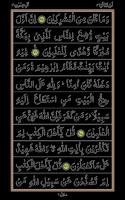 وَمَا كَانَ مِنَ الْمُشْرِكِينَ إِنَّ أَوَّلَ
بَيْتٍ وُضِعَ لِلنَّاسِ لَلَّذِي بِبَكَّةَ
مُبَارَكًا وَهُدًى لِّلْعَالَمِينَ فِيهِ
آيَاتٌ بَيِّنَاتٌ مَّقَامُ إِبْرَاهِيمَ وَمَنْ
دَخَلَهُ كَانَ آمِنًا وَلِلَّهِ عَلَى النَّاسِ
حِجُّ الْبَيْتِ مَنِ اسْتَطَاعَ إِلَيْهِ
سَبِيلًا وَمَنْ كَفَرَ فَإِنَّ اللَّهَ غَنِيٌّ عَنِ
الْعَالَمِينَ قُلْ يَا أَهْلَ الْكِتَابِ لِمَ
تَكْفُرُونَ بِآيَاتِ اللَّهِ وَاللَّهُ شَهِيدٌ
عَلَى مَا تَعْمَلُونَ قُلْ يَا أَهْلَ الْكِتَابِ لِمَ